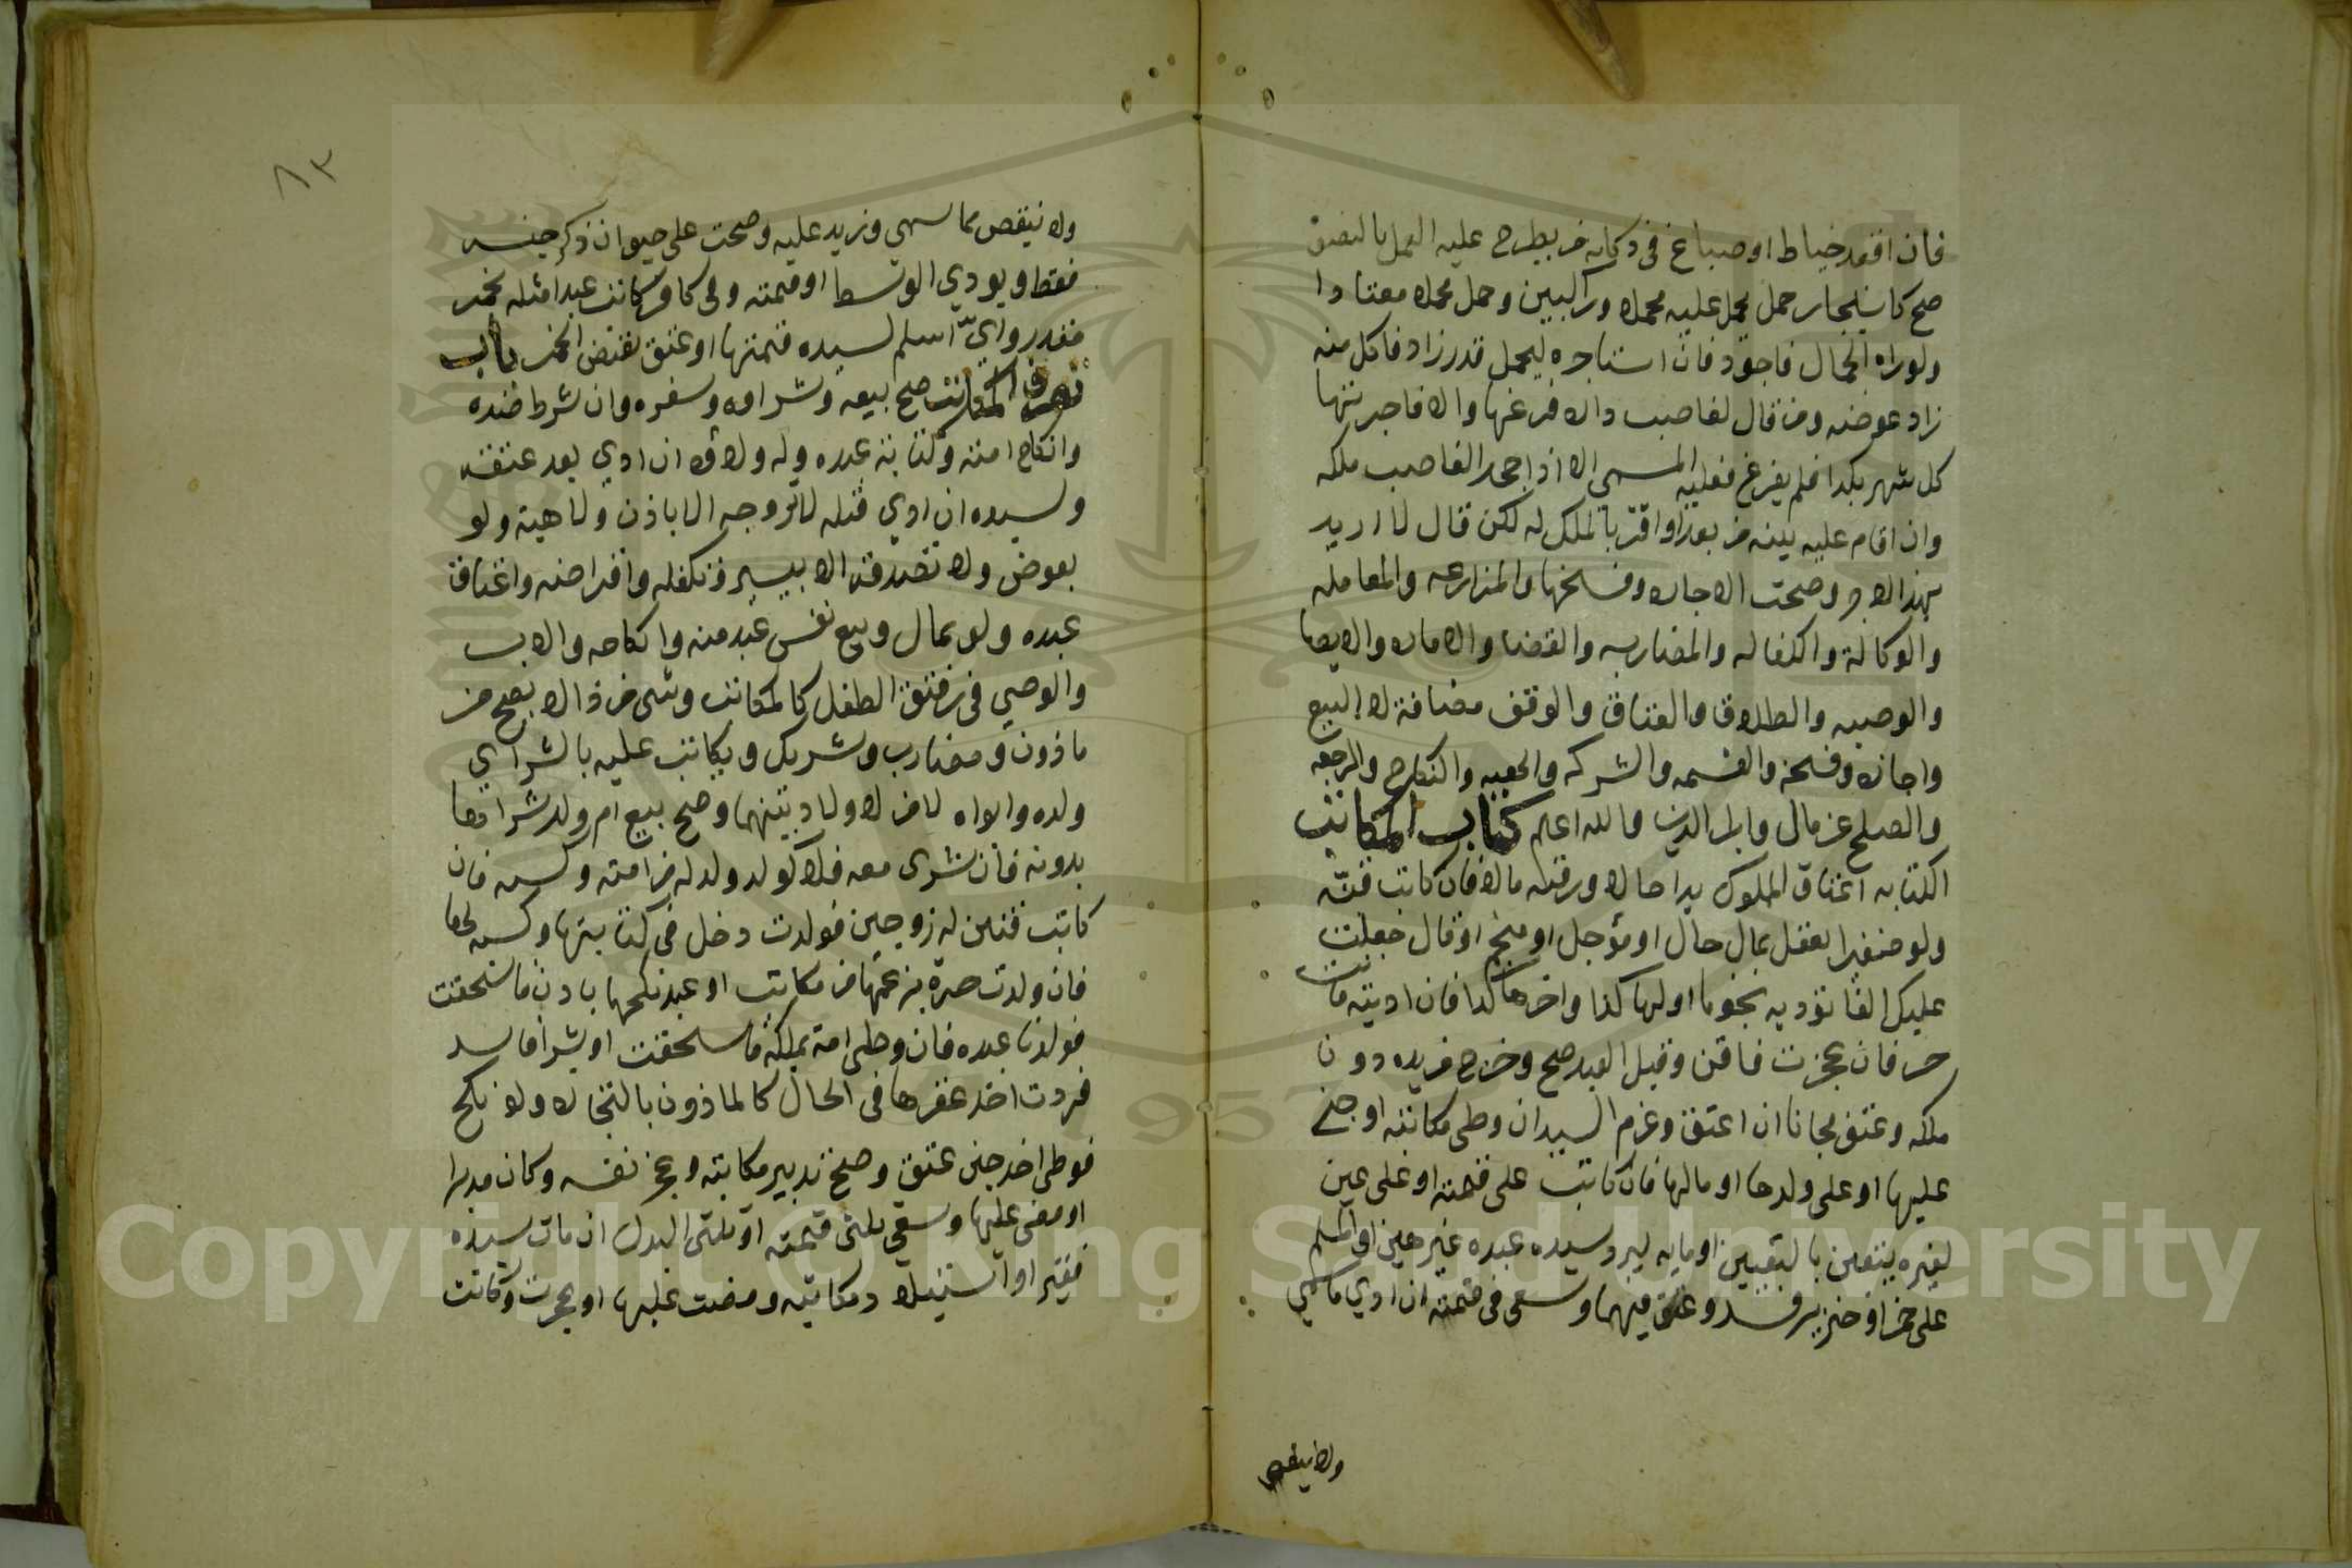 فان اقعد خياط او صباغ في دكانه من يطرح عليه العمل بالنصف
صح كاستيجار جمل يحمل عليه محملا وراكبين وحمل محملا معتادا
ولو راه الجمال فاجود فان استاجره ليحمل قدر زاد فاكل منه
زاد عوضه ومن قال لغاصب داره فرغها والا فاجرتها
كل شهر بكذا فلم يفرغ فعليه المسمى الا اذا جحد الغاصب ملكه
وان اقام عليه بينه من بعد او اقر بالملك له لكن قال لا اريد
بهذا الاجر وصحت الاجاره وفسخها والمزارعه والمعامله
والوكالة والكفاله والمضاربه والقضا والاماره والايصا
والوصيه والطلاق والعتاق والوقف مضافة لا البيع
واجازه وفسخه والقسمه والشركه والهبه والنكاح والرجعه
والصلح عن مال وابرا الدين والله اعلم كتاب المكاتب
الكتابه اعتاق المملوك يدا حالا ورقبه مالا فان كاتب قنه
ولو صغيرا يعقل بمال حال او مؤجل او منجم او قال جعلت
عليك الفا تؤديه نجوما اولها كذا واخرها كذا فان اديته فانت
حر فان عجزت فاقن وقبل العبد صح وخرج من يده دون
ملكه وعتق مجانا ان اعتق وغرم السيد ان وطي مكاتبته او جنى
عليها او على ولدها او مالها فان كاتب على قيمته او على عين
لغيره يتعين بالتعيين او مايه ليرد سيده عبده غير عين او المسلم
على خمر او خنزير فسد وعتق فيهما وسعى في قيمته ان ادي ما سمي
ولا ينقص
٨٣
ولا ينقص مما سمي وزيد عليه وصحت على حيوان ذكر جنسه
فقط ويودي الوسط او قيمته وفي كافر كاتب عبدا مثله بخمر
مقدر واي اسلم لسيده قيمتها وعتق بقبض الخمر باب
تصرف المكاتب صح بيعه وشراوه وسفره وان شرط ضده
وانكاح امته وكتابة عبده وله ولاوه ان ادي بعد عتقه
ولسيده ان ادي قبله لا تزوجه الا باذن ولا هبة ولو
بعوض ولا تصدقه الا بيسير وتكفله واقراضه واعتاق
عبده ولو بمال وبيع نفس عبد منه وانكاحه والاب
والوصي في رقيق الطفل كالمكاتب وشي من ذا لا يصح من
ماذون ومضارب وشريك ويكاتب عليه بالشرا اي
ولده وابواه لا من لا ولاد بينهما وصح بيع ام ولد شراها
بدونه فان شرى معه فلا كولد ولد له من امته وكسبه فان
كاتب قنين له زوجين فولدت دخل في كتابتها وكسبه لها
فان ولدت حرة بزعمها من مكاتب او عبد نكحها باذن فاستحقت
فولدها عبده فان وطي امة بملكه فاستحقت او بشرا فاسد
فردت اخذ عقرها في الحال كالماذون بالتجاره ولو نكح
فوطي اخذ حين عتق وصح تدبير مكاتبه وعجز نفسه وكان مدبرا
او مضى عليها وسعى في ثلثي قيمته او ثلثي البدل ان مات سيده
فقيرا او استيلاد مكاتبته ومضت عليها او عجزت وكانت
Copyright © King Saud University
1957